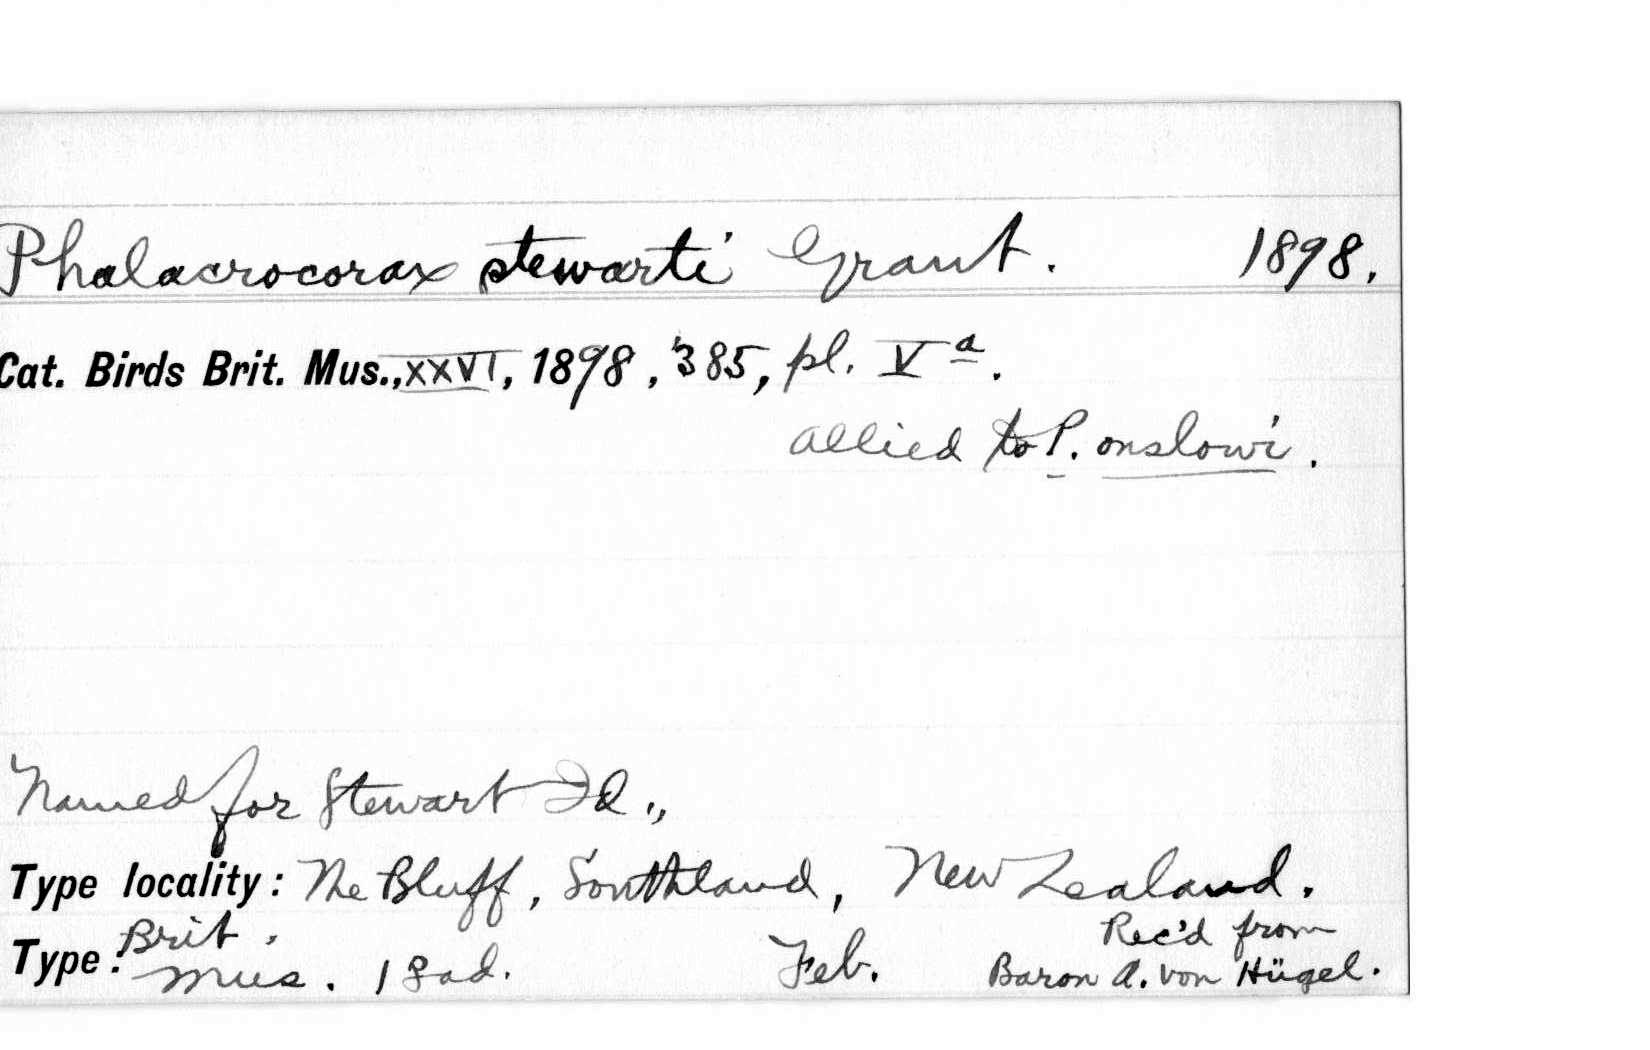 Phalacrocorax stewarti Grant. 1898.
Cat. Birds Brit. Mus., XXVI, 1898, 385, pl. V a.
allied to P. onslowi.
Named for Stewart Id.,
Type locality: The Bluff, Southland, New Zealand.
Type: Brit. Mus. 1 ♀ ad. Feb. Rec'd from
Baron A. von Hügel.